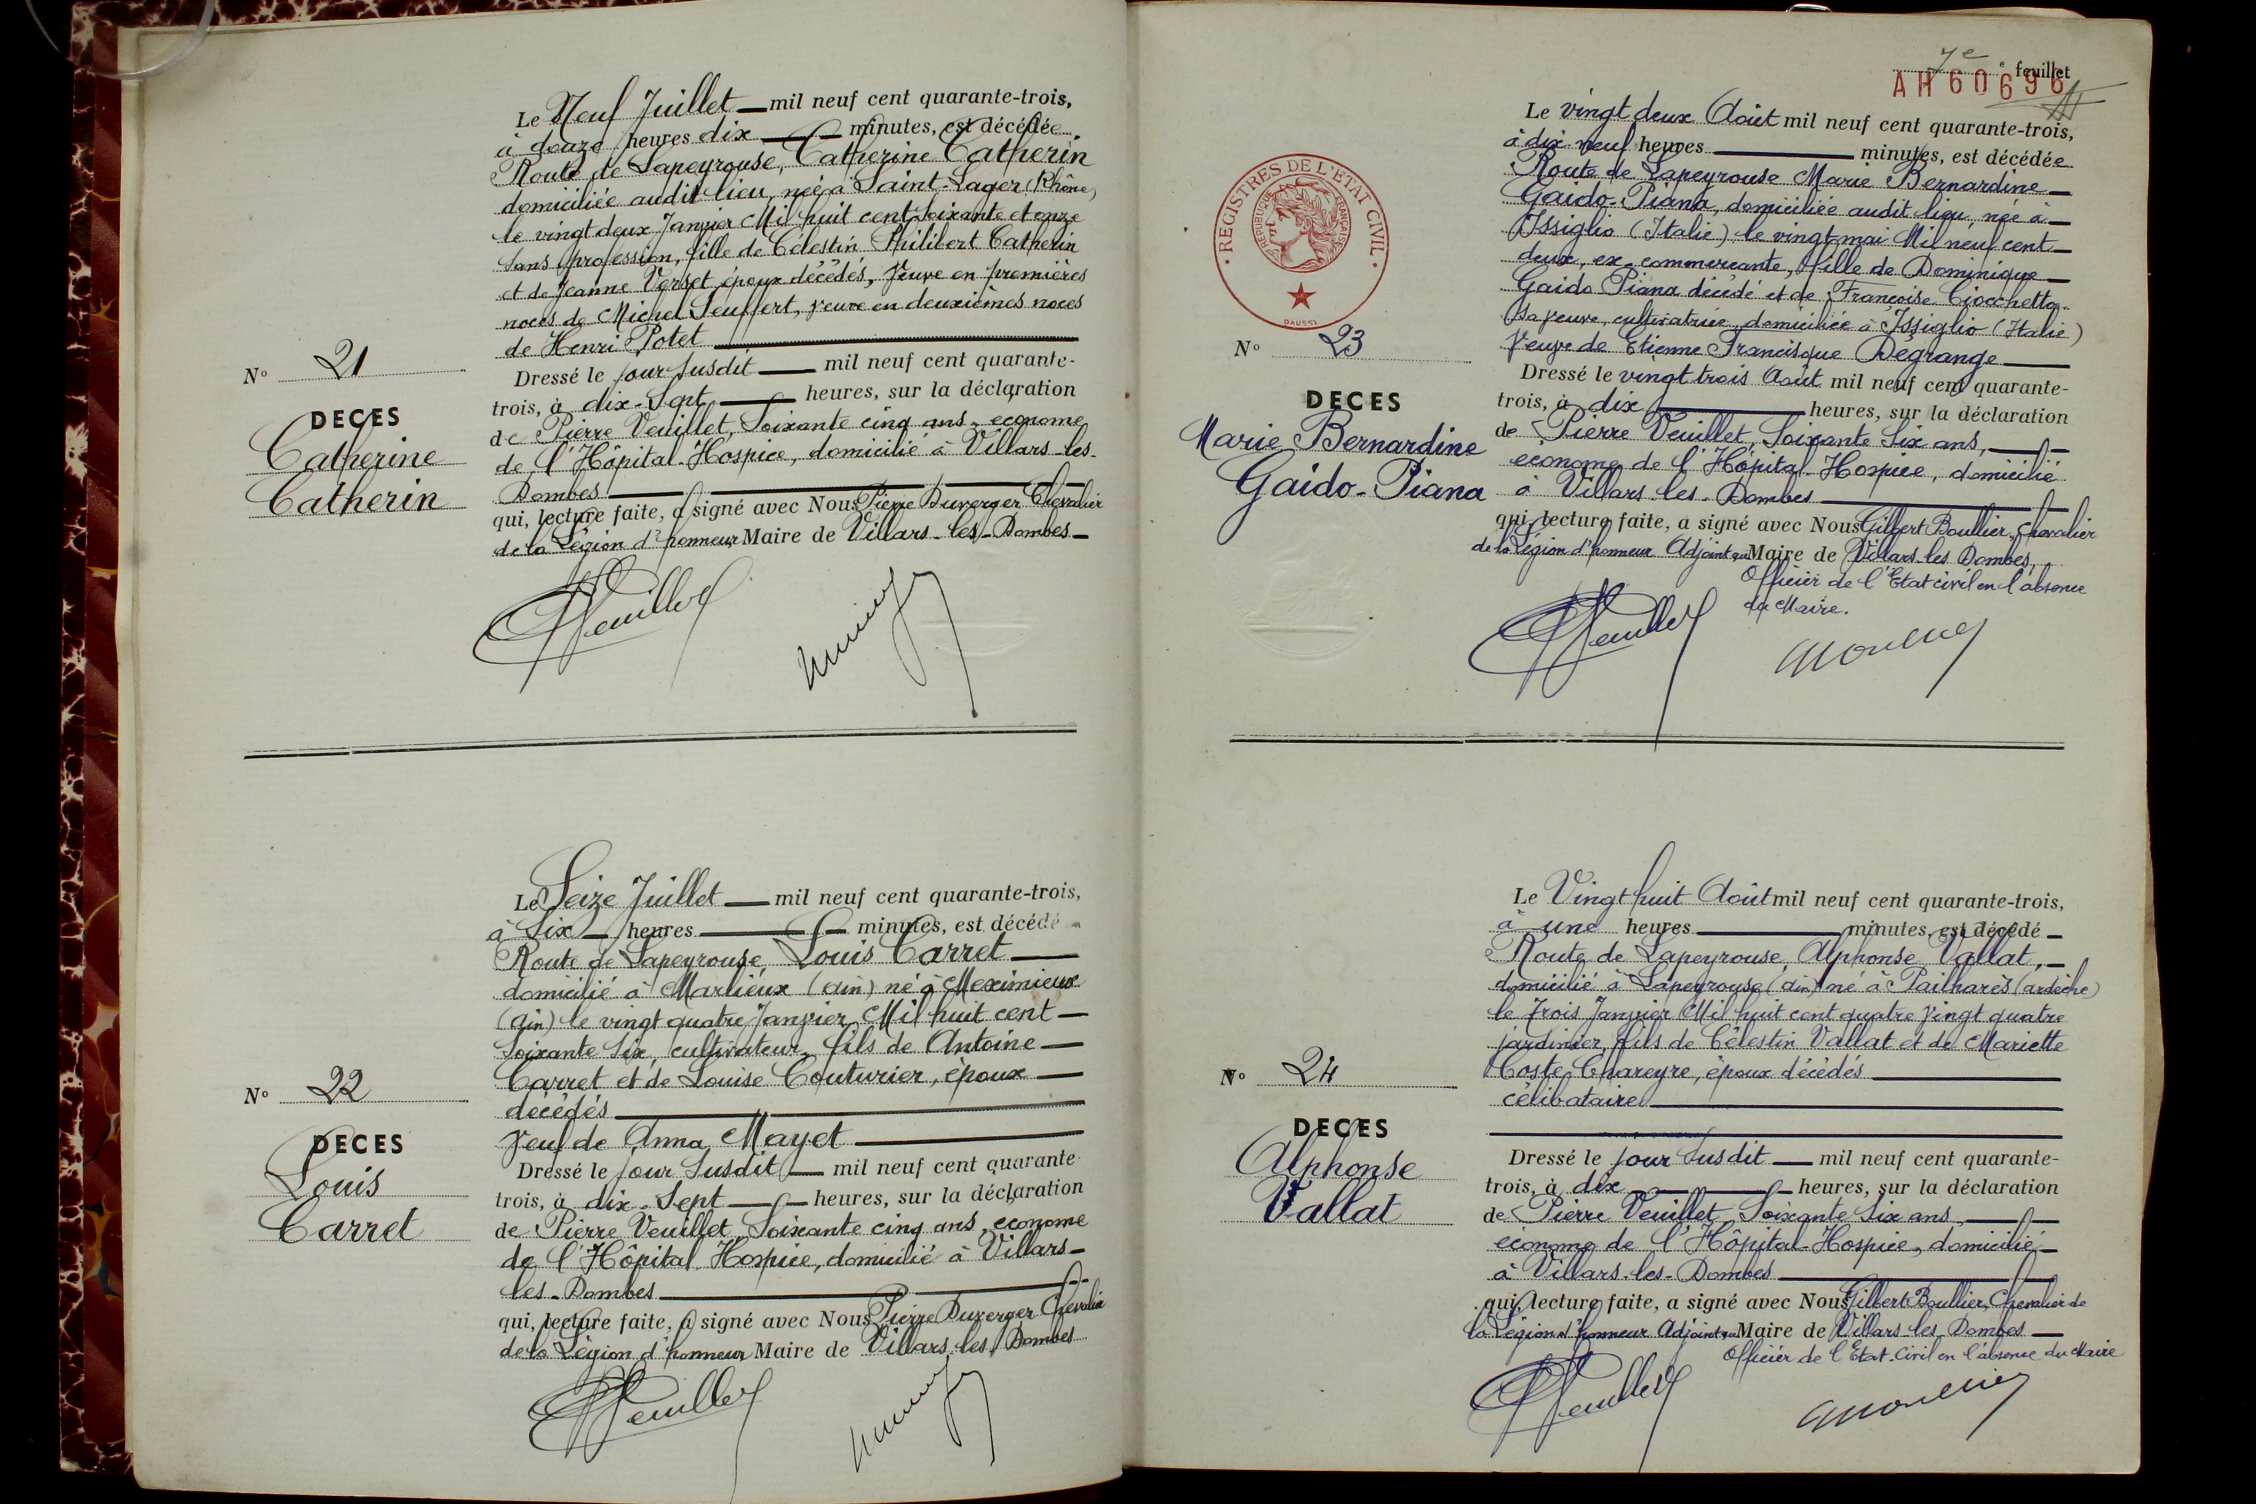 Le Neuf Juillet mil neuf cent quarante-trois,
à douze heures dix minutes, est décédée
Route de Lapeyrouse, Catherine Catherin
domiciliée audit lieu, née à Saint-Lager (Rhône)
le vingt deux Janvier Mil huit cent soixante et onze
sans profession, fille de Célestin Philibert Catherin
et de Jeanne Verset époux décédés, Veuve en premières
noces de Michel Seuffert, veuve en deuxièmes noces
de Henri Potet
Nº 21
DECES
Catherine
Catherin
Dressé le jour susdit mil neuf cent quarante-
trois, à dix-sept heures, sur la déclaration
de Pierre Veuillet, Soixante cinq ans, économe
de l'Hôpital-Hospice, domicilié à Villars-les-
Dombes
qui, lecture faite, a signé avec Nous Pierre Duverger Chevalier
de la Légion d'honneur Maire de Villars-les-Dombes
Veuillet
Le Seize Juillet mil neuf cent quarante-trois,
à Six heures minutes, est décédé
Route de Lapeyrouse, Louis Carret
domicilié à Marlieux (ain) né à Meximieux
(ain) le vingt quatre Janvier Mil huit cent
Soixante Six, cultivateur, fils de Antoine
Carret et de Louise Couturier, époux
décédés
Veuf de Anna Mayet
Nº 22
DECES
Louis
Carret
Dressé le jour susdit mil neuf cent quarante-
trois, à dix-sept heures, sur la déclaration
de Pierre Veuillet, Soixante cinq ans, économe
de l'Hôpital Hospice, domicilié à Villars-
les-Dombes
qui, lecture faite, a signé avec Nous Pierre Duverger Chevalier
de la Légion d'honneur Maire de Villars les Dombes
Veuillet
7e feuillet
AH60696
REGISTRES DE L'ETAT CIVIL
REPUBLIQUE FRANÇAISE
DAUSSY
Le vingt deux Août mil neuf cent quarante-trois,
à dix-neuf heures minutes, est décédée
Route de Lapeyrouse Marie Bernardine
Gaido-Piana, domiciliée audit lieu née à
Issiglio (Italie) le vingt mai Mil neuf cent
deux, ex-commerçante, fille de Dominique
Gaido Piana décédé et de Françoise Ciocchetto
sa veuve, cultivatrice, domiciliée à Issiglio (Italie)
Veuve de Etienne Francisque Degrange
Nº 23
DECES
Marie Bernardine
Gaido-Piana
Dressé le vingt trois Août mil neuf cent quarante-
trois, à dix heures, sur la déclaration
de Pierre Veuillet, Soixante Six ans,
économe de l'Hôpital-Hospice, domicilié
à Villars-les-Dombes
qui, lecture faite, a signé avec Nous Gilbert Boullier, Chevalier
de la Légion d'honneur Adjoint au Maire de Villars-les-Dombes,
Officier de l'Etat civil en l'absence
du Maire.
Veuillet
Le Vingt huit Août mil neuf cent quarante-trois,
à une heures minutes, est décédé
Route de Lapeyrouse, Alphonse Vallat,
domicilié à Lapeyrouse (ain) né à Pailharès (ardèche)
le Trois Janvier Mil huit cent quatre vingt quatre
jardinier, fils de Célestin Vallat et de Mariette
Coste Chareyre, époux décédés
célibataire
Nº 24
DECES
Alphonse
Vallat
Dressé le jour susdit mil neuf cent quarante-
trois, à dix heures, sur la déclaration
de Pierre Veuillet, Soixante Six ans,
économe de l'Hôpital-Hospice, domicilié
à Villars-les-Dombes
qui, lecture faite, a signé avec Nous Gilbert Boullier, Chevalier de
la Légion d'honneur Adjoint au Maire de Villars les Dombes
Officier de l'Etat-Civil en l'absence du Maire
Veuillet